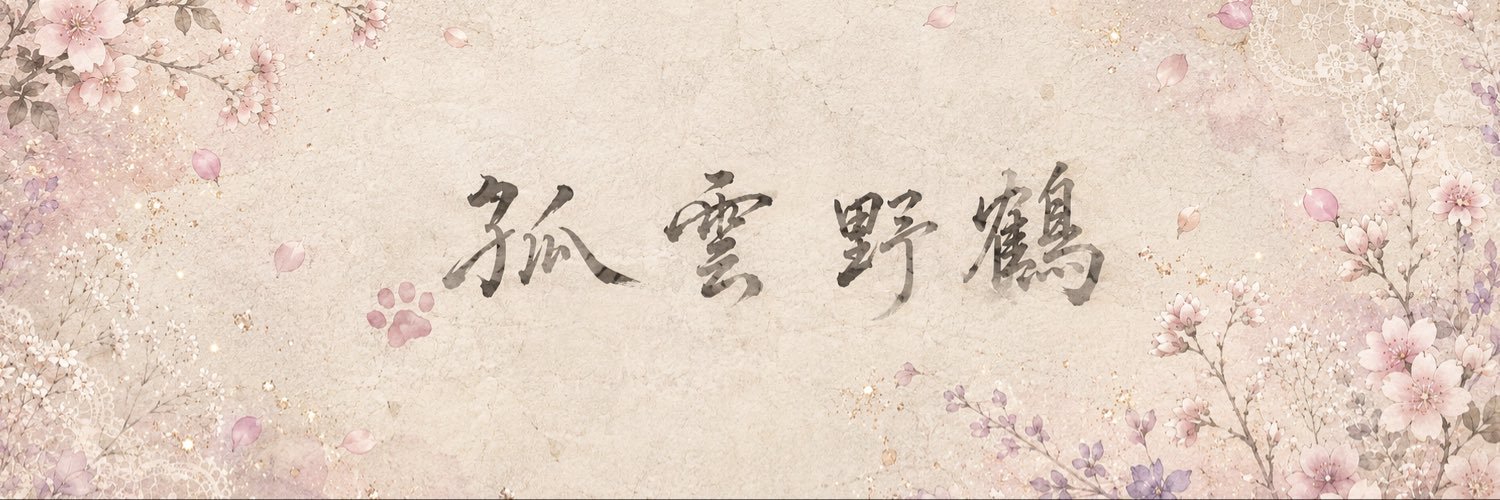 孤雲野鶴